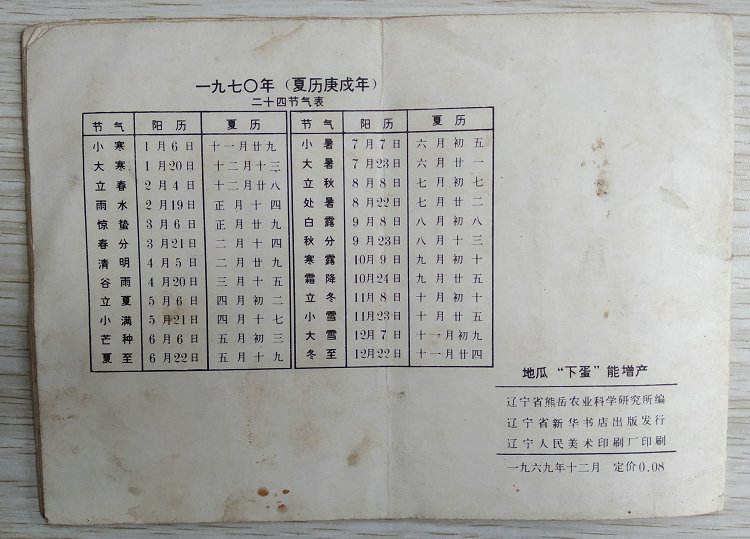 一九七〇年（夏历庚戌年）
二十四节气表
节气 阳历 夏历 节气 阳历 夏历
小寒 1月6日 十一月廿九 小暑 7月7日 六月初五
大寒 1月20日 十二月十三 大暑 7月23日 六月廿一
立春 2月4日 十二月廿八 立秋 8月8日 七月初七
雨水 2月19日 正月十四 处暑 8月22日 七月廿二
惊蛰 3月6日 正月廿九 白露 9月8日 八月初八
春分 3月21日 二月十四 秋分 9月23日 八月十三
清明 4月5日 二月廿九 寒露 10月9日 九月初十
谷雨 4月20日 三月十五 霜降 10月24日 九月廿五
立夏 5月6日 四月初二 立冬 11月8日 十月初十
小满 5月21日 四月十七 小雪 11月23日 十月廿五
芒种 6月6日 五月初三 大雪 12月7日 十一月初九
夏至 6月22日 五月十九 冬至 12月22日 十一月廿四
地瓜“下蛋”能增产
辽宁省熊岳农业科学研究所编
辽宁省新华书店出版发行
辽宁人民美术印刷厂印刷
一九六九年十二月 定价0.08